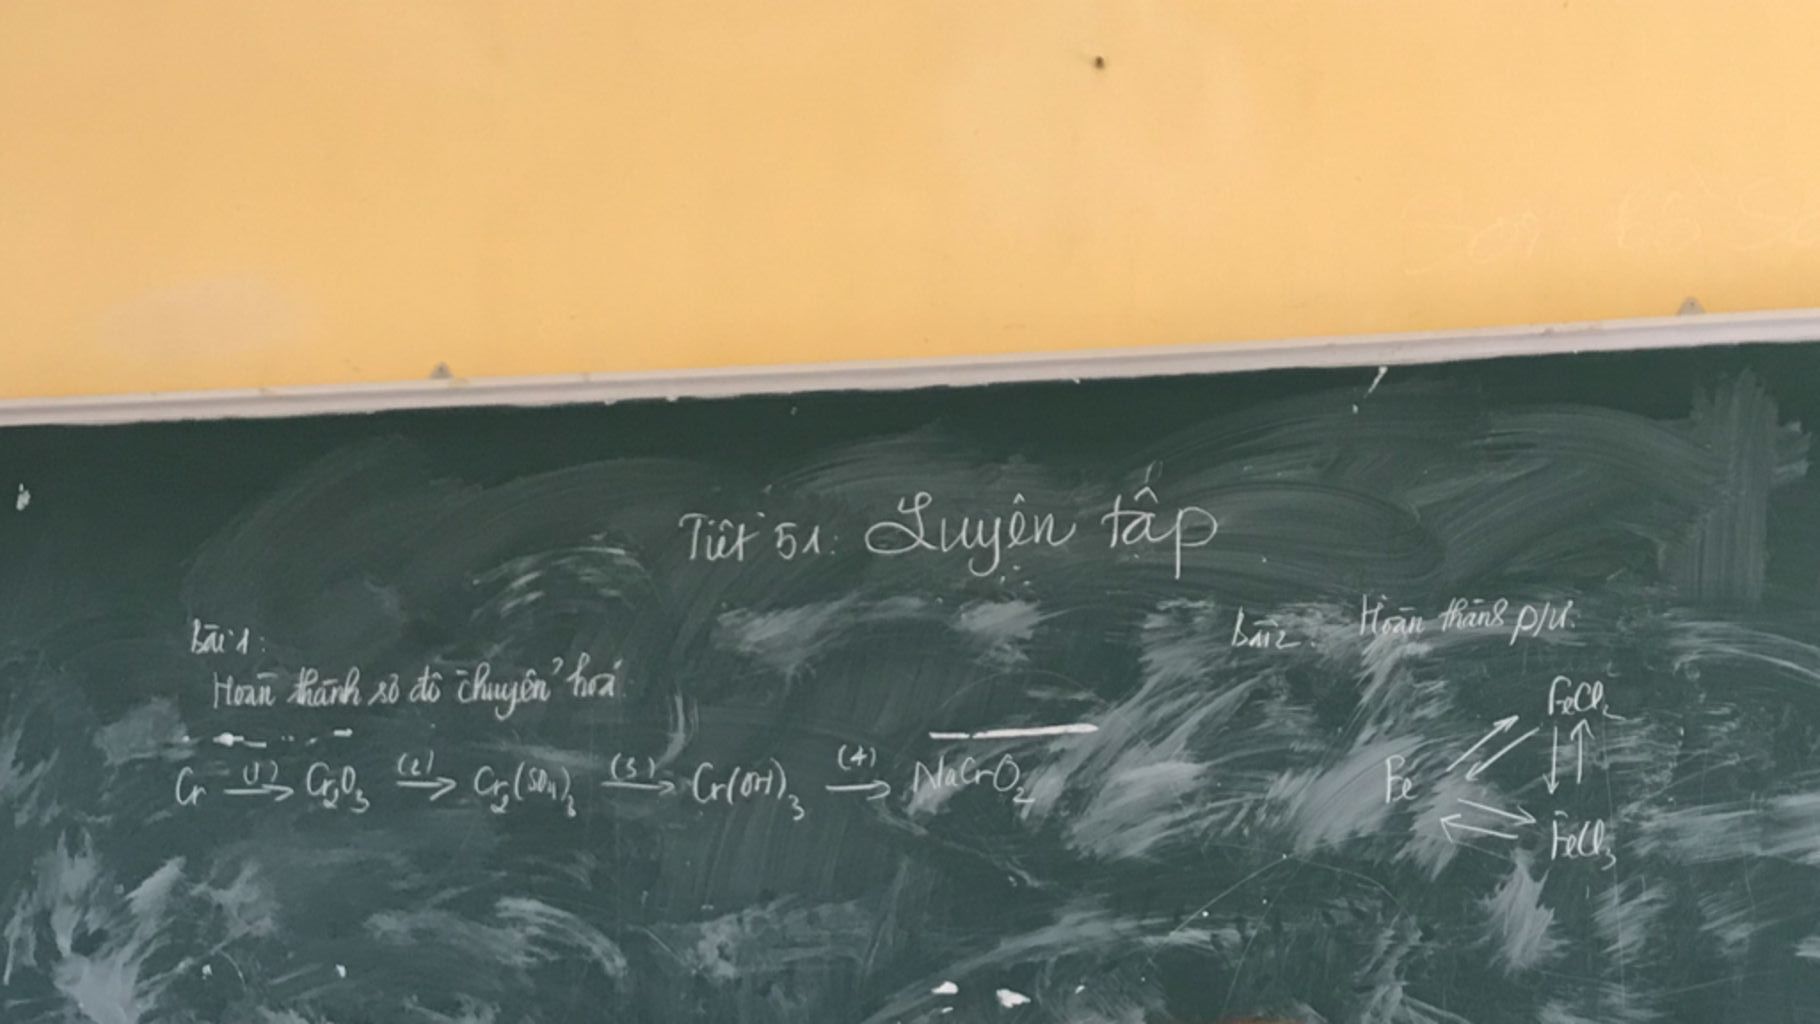 Tiết 51: Luyện tập
Bài 1:
Hoàn thành sơ đồ chuyển hoá
Cr (1)→ Cr₂O₃ (2)→ Cr₂(SO₄)₃ (3)→ Cr(OH)₃ (4)→ NaCrO₂
Bài 2: Hoàn thành p/ư:
FeCl₂
Fe
FeCl₃